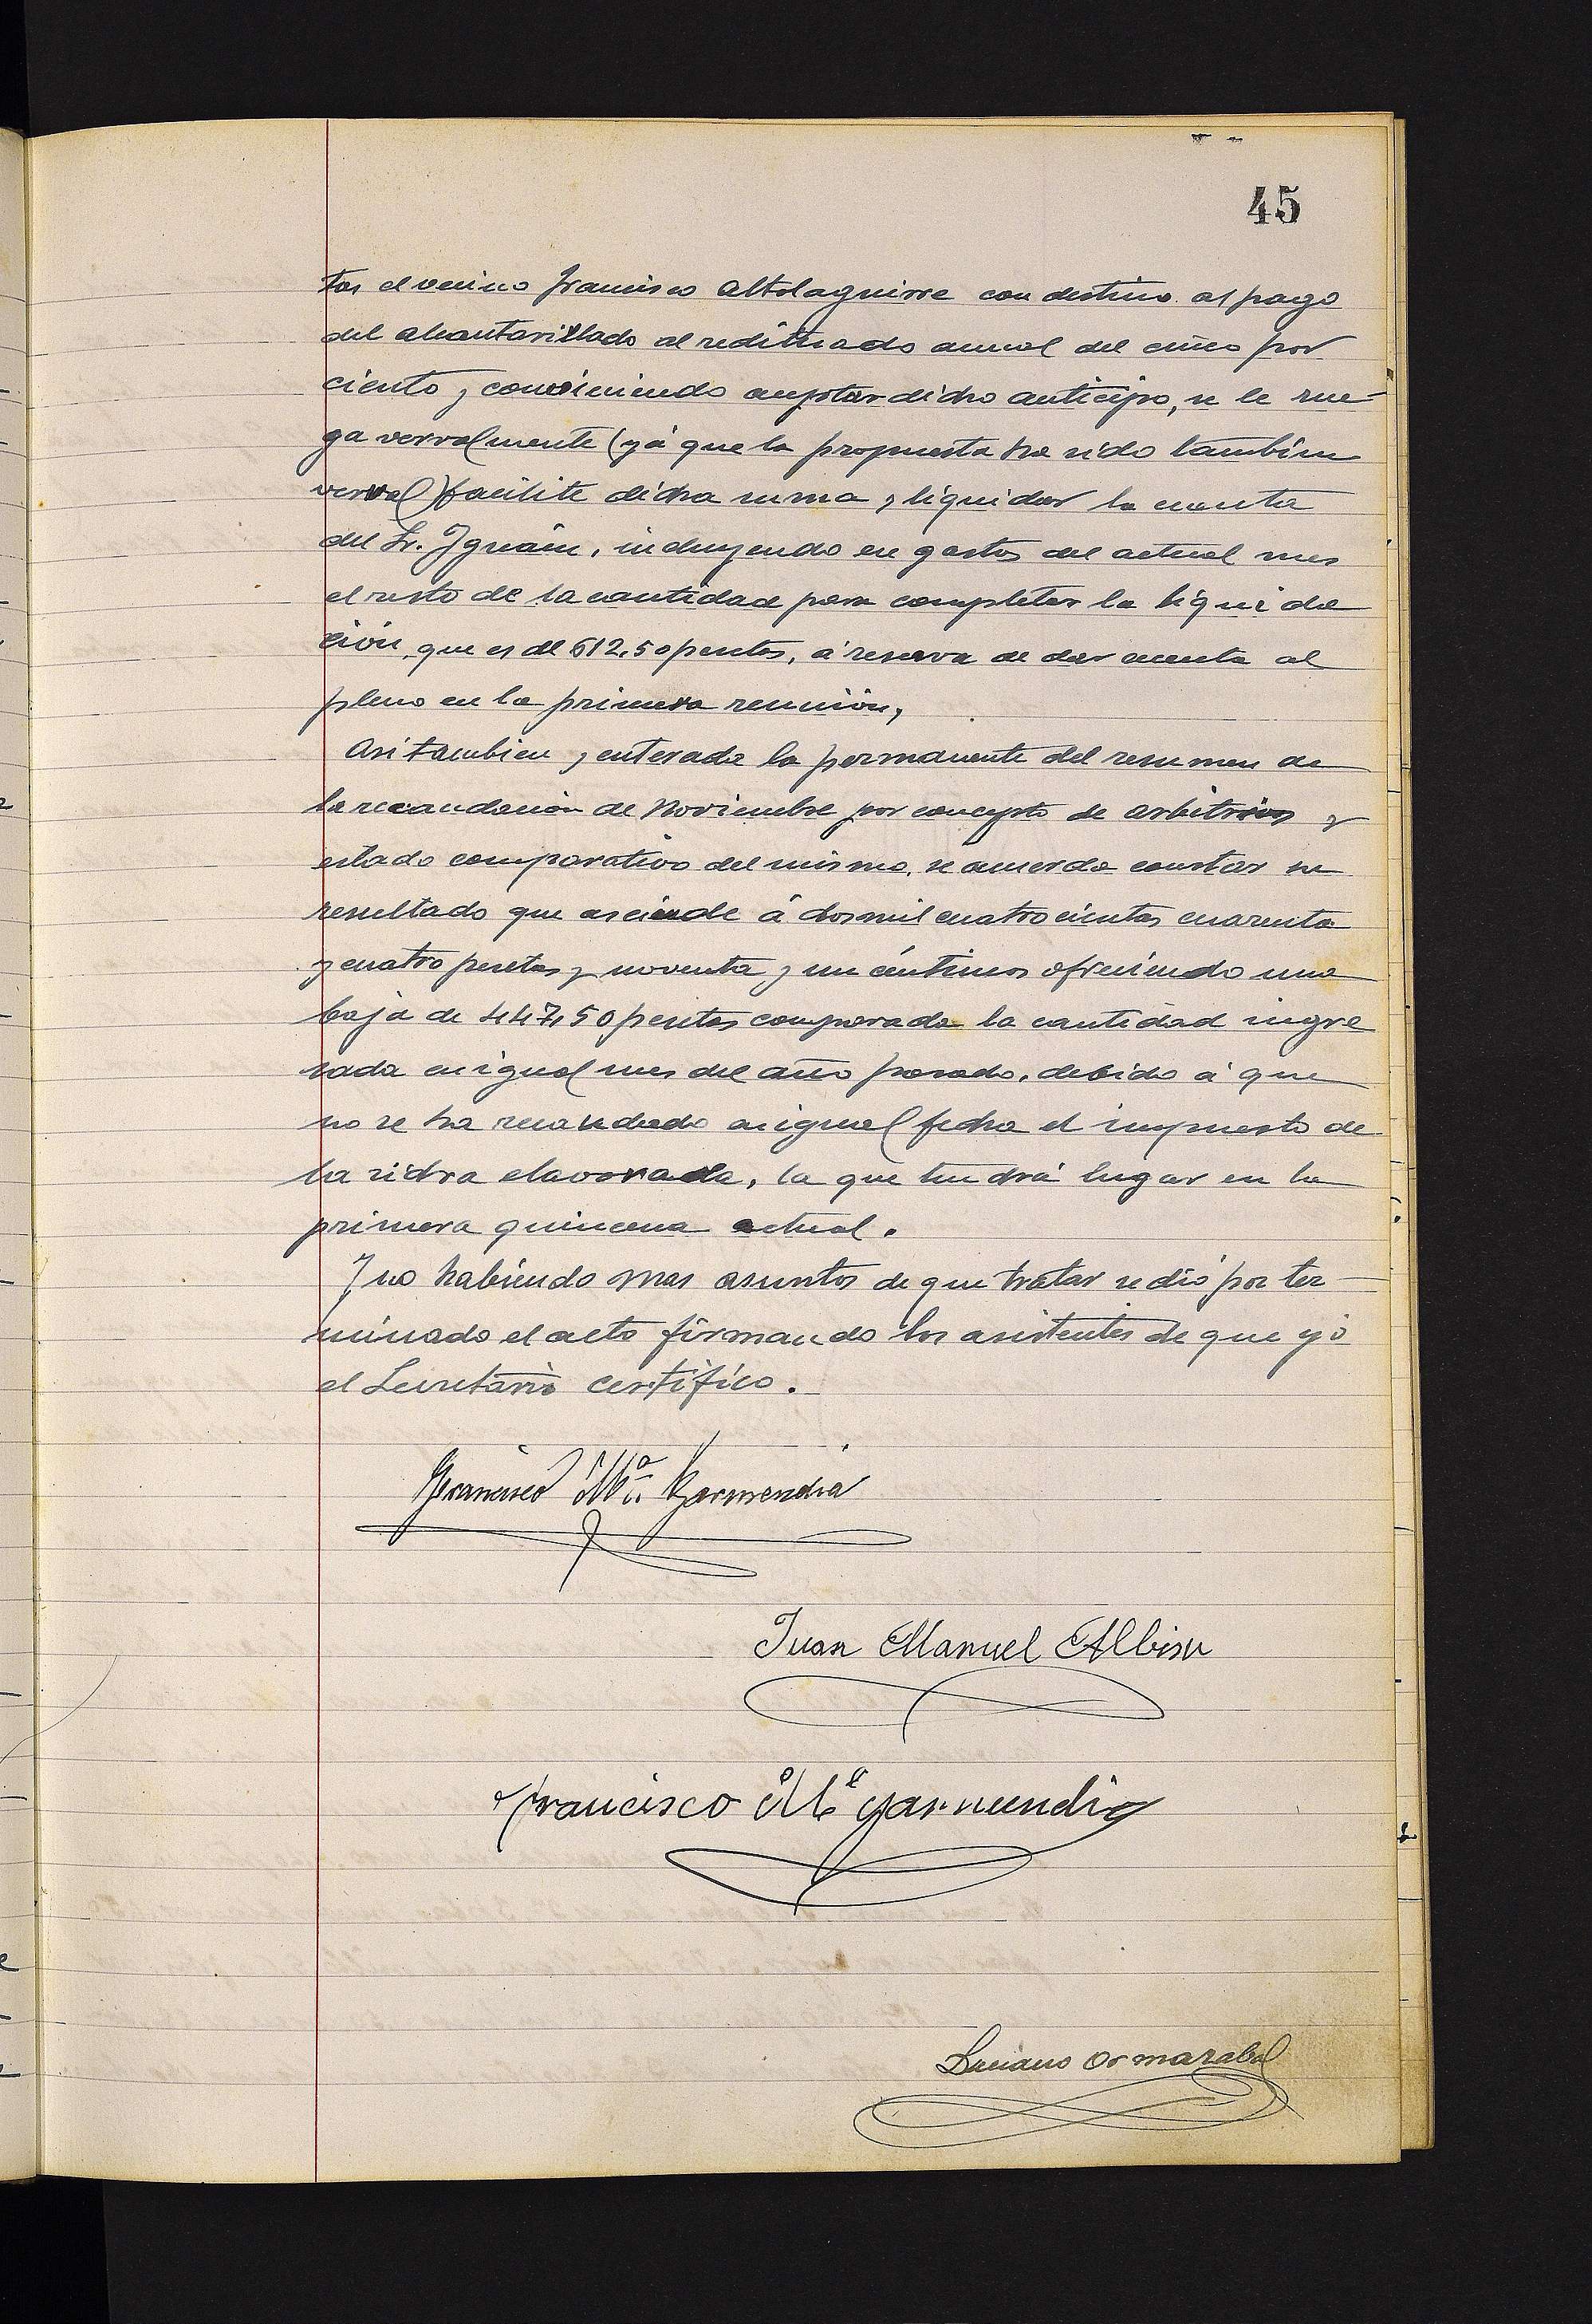 45
tas el vecino Francisco Altolaguirre con destino al pago
del alcantarillado al redituado anual del cinco por
ciento y conviniendo aceptar dicho anticipo, se le rue-
ga vervalmente (yá que la propuesta ha sido tambien
verval) facilite dicha suma y liquidar la cuenta
del Sr. Iguáin, incluyendo en gastos del actual mes
el resto de la cantidad para completar la liquida
ción, que es de 612,50 pesetas, á reserva de dar cuenta al
pleno en la primera reunión,
Asi tambien y enterada la permanente del resumen de
la recaudacion de Noviembre por concepto de arbitrios y
estado comparativo del mismo, se acuerda constar su
resultado que asciende á dos mil cuatrocientas cuarenta
y cuatro pesetas y noventa y un céntimos ofreciendo una
baja de 447,50 pesetas comparada la cantidad ingre
sada en igual mes del año pasado, debido á que
no se ha recaudado en igual fecha el impuesto de
la sidra elavorada, la que tendrá lugar en la
primera quincena actual.
Y no habiendo mas asuntos de que tratar se dió por ter
minado el acto firmando los asistentes de que yó
el Secretario certifico.
Francisco Mª Garmendia
Juan Manuel Albisu
Francisco Mª Garmendia
Luciano Ormazabal